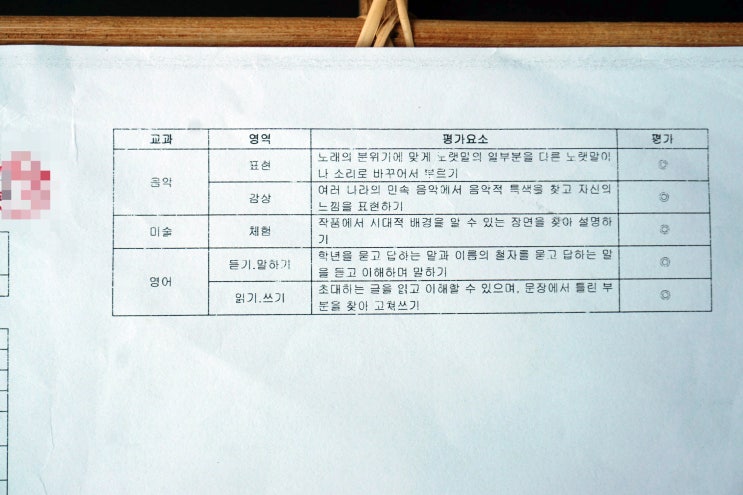 교과 영역 평가요소 평가
음악 표현 노래의 분위기에 맞게 노랫말의 일부분을 다른 노랫말이
나 소리로 바꾸어서 부르기 ◎
감상 여러 나라의 민속 음악에서 음악적 특색을 찾고 자신의
느낌을 표현하기 ◎
미술 체험 작품에서 시대적 배경을 알 수 있는 장면을 찾아 설명하
기 ◎
영어 듣기.말하기 학년을 묻고 답하는 말과 이름의 철자를 묻고 답하는 말
을 듣고 이해하며 말하기 ◎
읽기.쓰기 초대하는 글을 읽고 이해할 수 있으며, 문장에서 틀린 부
분을 찾아 고쳐쓰기 ◎